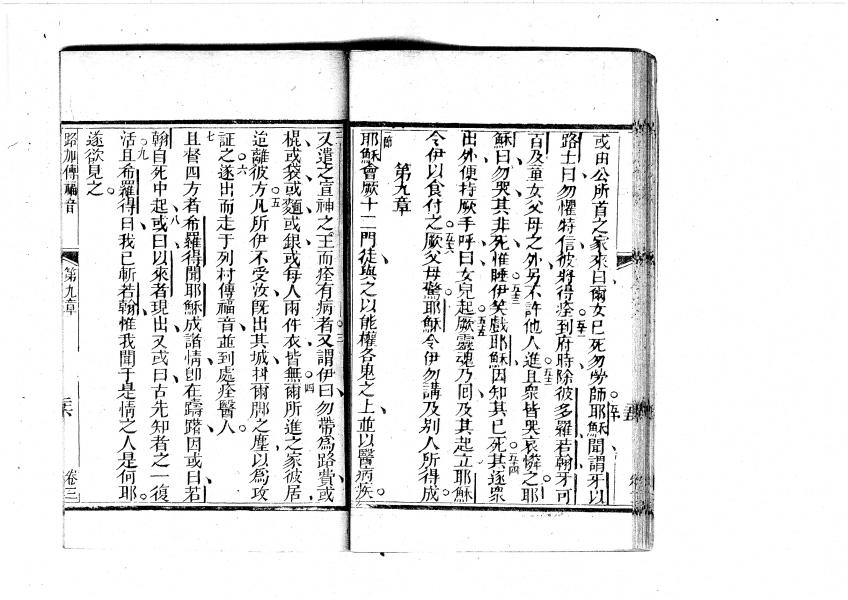 或由公所首之家來曰爾女已死勿勞師耶穌聞謂牙以
路士曰勿懼特信彼將得痊到府時除彼多羅若翰牙可
百及童女父母之外另不許他人進且衆皆哭哀憐之耶
穌曰勿哭其非死惟睡伊笑戲耶穌因知其已死其逐衆
出外便持厥手呼曰女兒起厥靈魂乃囘及其起立耶穌
令伊以食付之厥父母驚耶穌令伊勿講及別人所得成
第九章
一節
耶穌會厥十二門徒與之以能權各鬼之上並以醫病疾
又遣之宣神之王而痊有病者又謂伊曰勿帶爲路費或
棍或袋或麵或銀或每人兩件衣皆無爾所進之家彼居
迨離彼方凡所伊不受汝旣出其城抖爾脚之塵以爲攻
証之遂出而走于列村傳福音並到處痊醫人
且督四方者希羅得聞耶穌成諸情卽在疇躇因或曰若
翰自死中起或曰以來者現出又或曰古先知者之一復
活且希羅得曰我已斬若翰惟我聞于是情之人是何耶
遂欲見之
路加傳福音 第九章 卷三